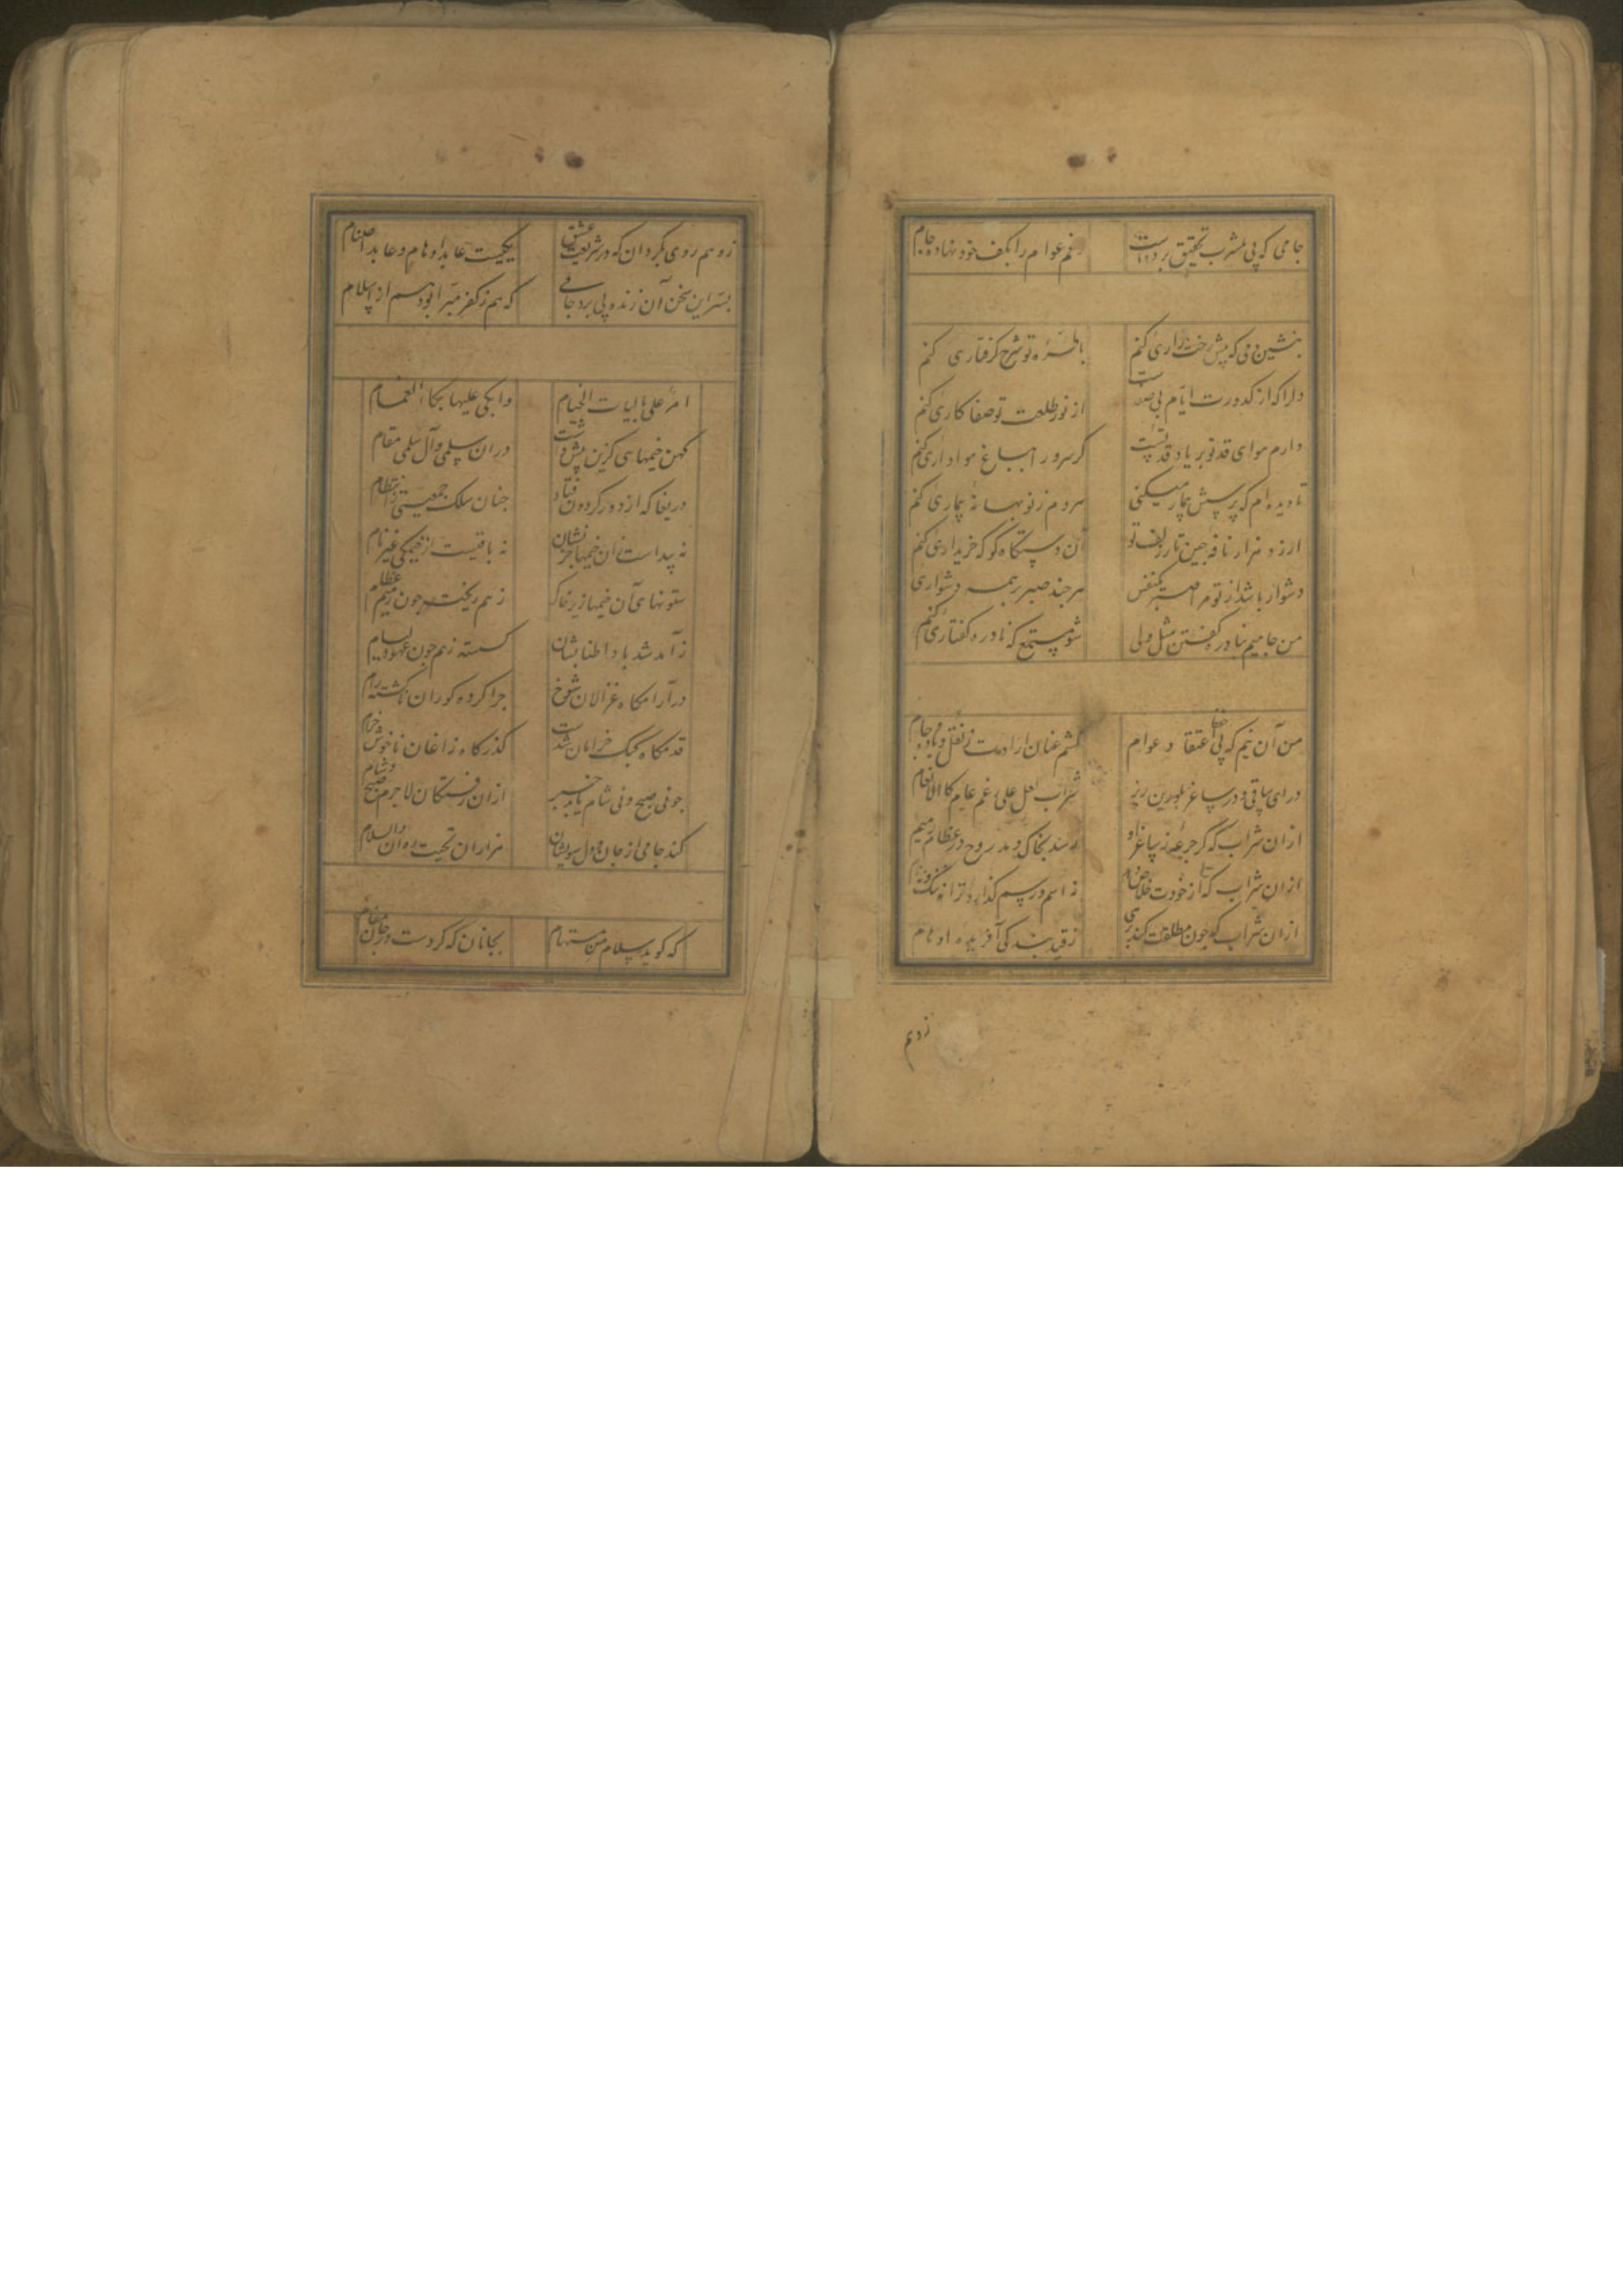 جامی که پی مشرب تحقیق بردست رغم عوام را بکف خود نهاده جام
بنشین دمی که پیش رخت زاری کنم با طره تو شرح کرفتاری کنم
دلرا که از کدورت ایام بی صفاست از نور طلعت تو صفا کاری کنم
دارم هوای قد تو بر یاد قد تست کر سرو را بباغ هواداری کنم
تا دیده ام که پرسش بیمار میکنی هر دم ز نو بهانه بیماری کنم
ارزد هزار نافه چین تار زلف تو آن دستکاه کو که خریداری کنم
دشوار باشد از تو مرا صبر یکنفس هر چند صبر بر همه دشواری کنم
من جامیم بنادره کفتن مثل ولی شو مستمع که نادره کفتاری کنم
من آن نیم که پی اعتقاد عوام کشم عنان ارادت ز نقل و باده و جام
درای ساقی و در ساغر بلورین ریز شراب لعل علی رغم عام کالانعام
ازان شراب که کر جرعه ز ساغر او رسد بخاک دمد روح در عظام رمیم
ازان شراب که تا از خودت خلاص نه اسم و رسم کذارد ترا نه ننک و نه نام
ازان شراب که چون مطلقت کند بری ز قید بندکی آفریده اوهام
زوهم
زوهم روی بکردان که در شریعت عشق یکیست عابد اوهام و عابد اصنام
بسر این سخن آن زنده پی برد جامی که هم ز کفر مبرا بود هم از اسلام
امر علی بالیات الخیام وابکی علیها بکاء الغمام
کهن خیمهایی کزین پیش داشت دران سلمی وآل سلمی مقام
دریغا که از دور کردون فتاد چنان سلک جمعیتی ز انتظام
نه پیداست زان خیمها جز نشان نه باقیست از خیمکی غیر نام
ستونهای آن خیمها زیر خاک ز هم ریخته چون رمیم عظام
ز آمد شد باد اطنابشان کسسته ز هم چون عهود لئیام
در آرامکاه غزالان شوخ چرا کرده کوران ناکشته رام
قدمکاه کبک خرامان شدست کذرکاه زاغان ناخوش خرام
چو نی صبح و نی شام یابد خبر ازان رفتکان لاجرم صبح و شام
کند جامی از جان و دل سویشان هزاران تحیت روان والسلام
که کوید سلام من مستهام بجانان که کردست در جان مقام